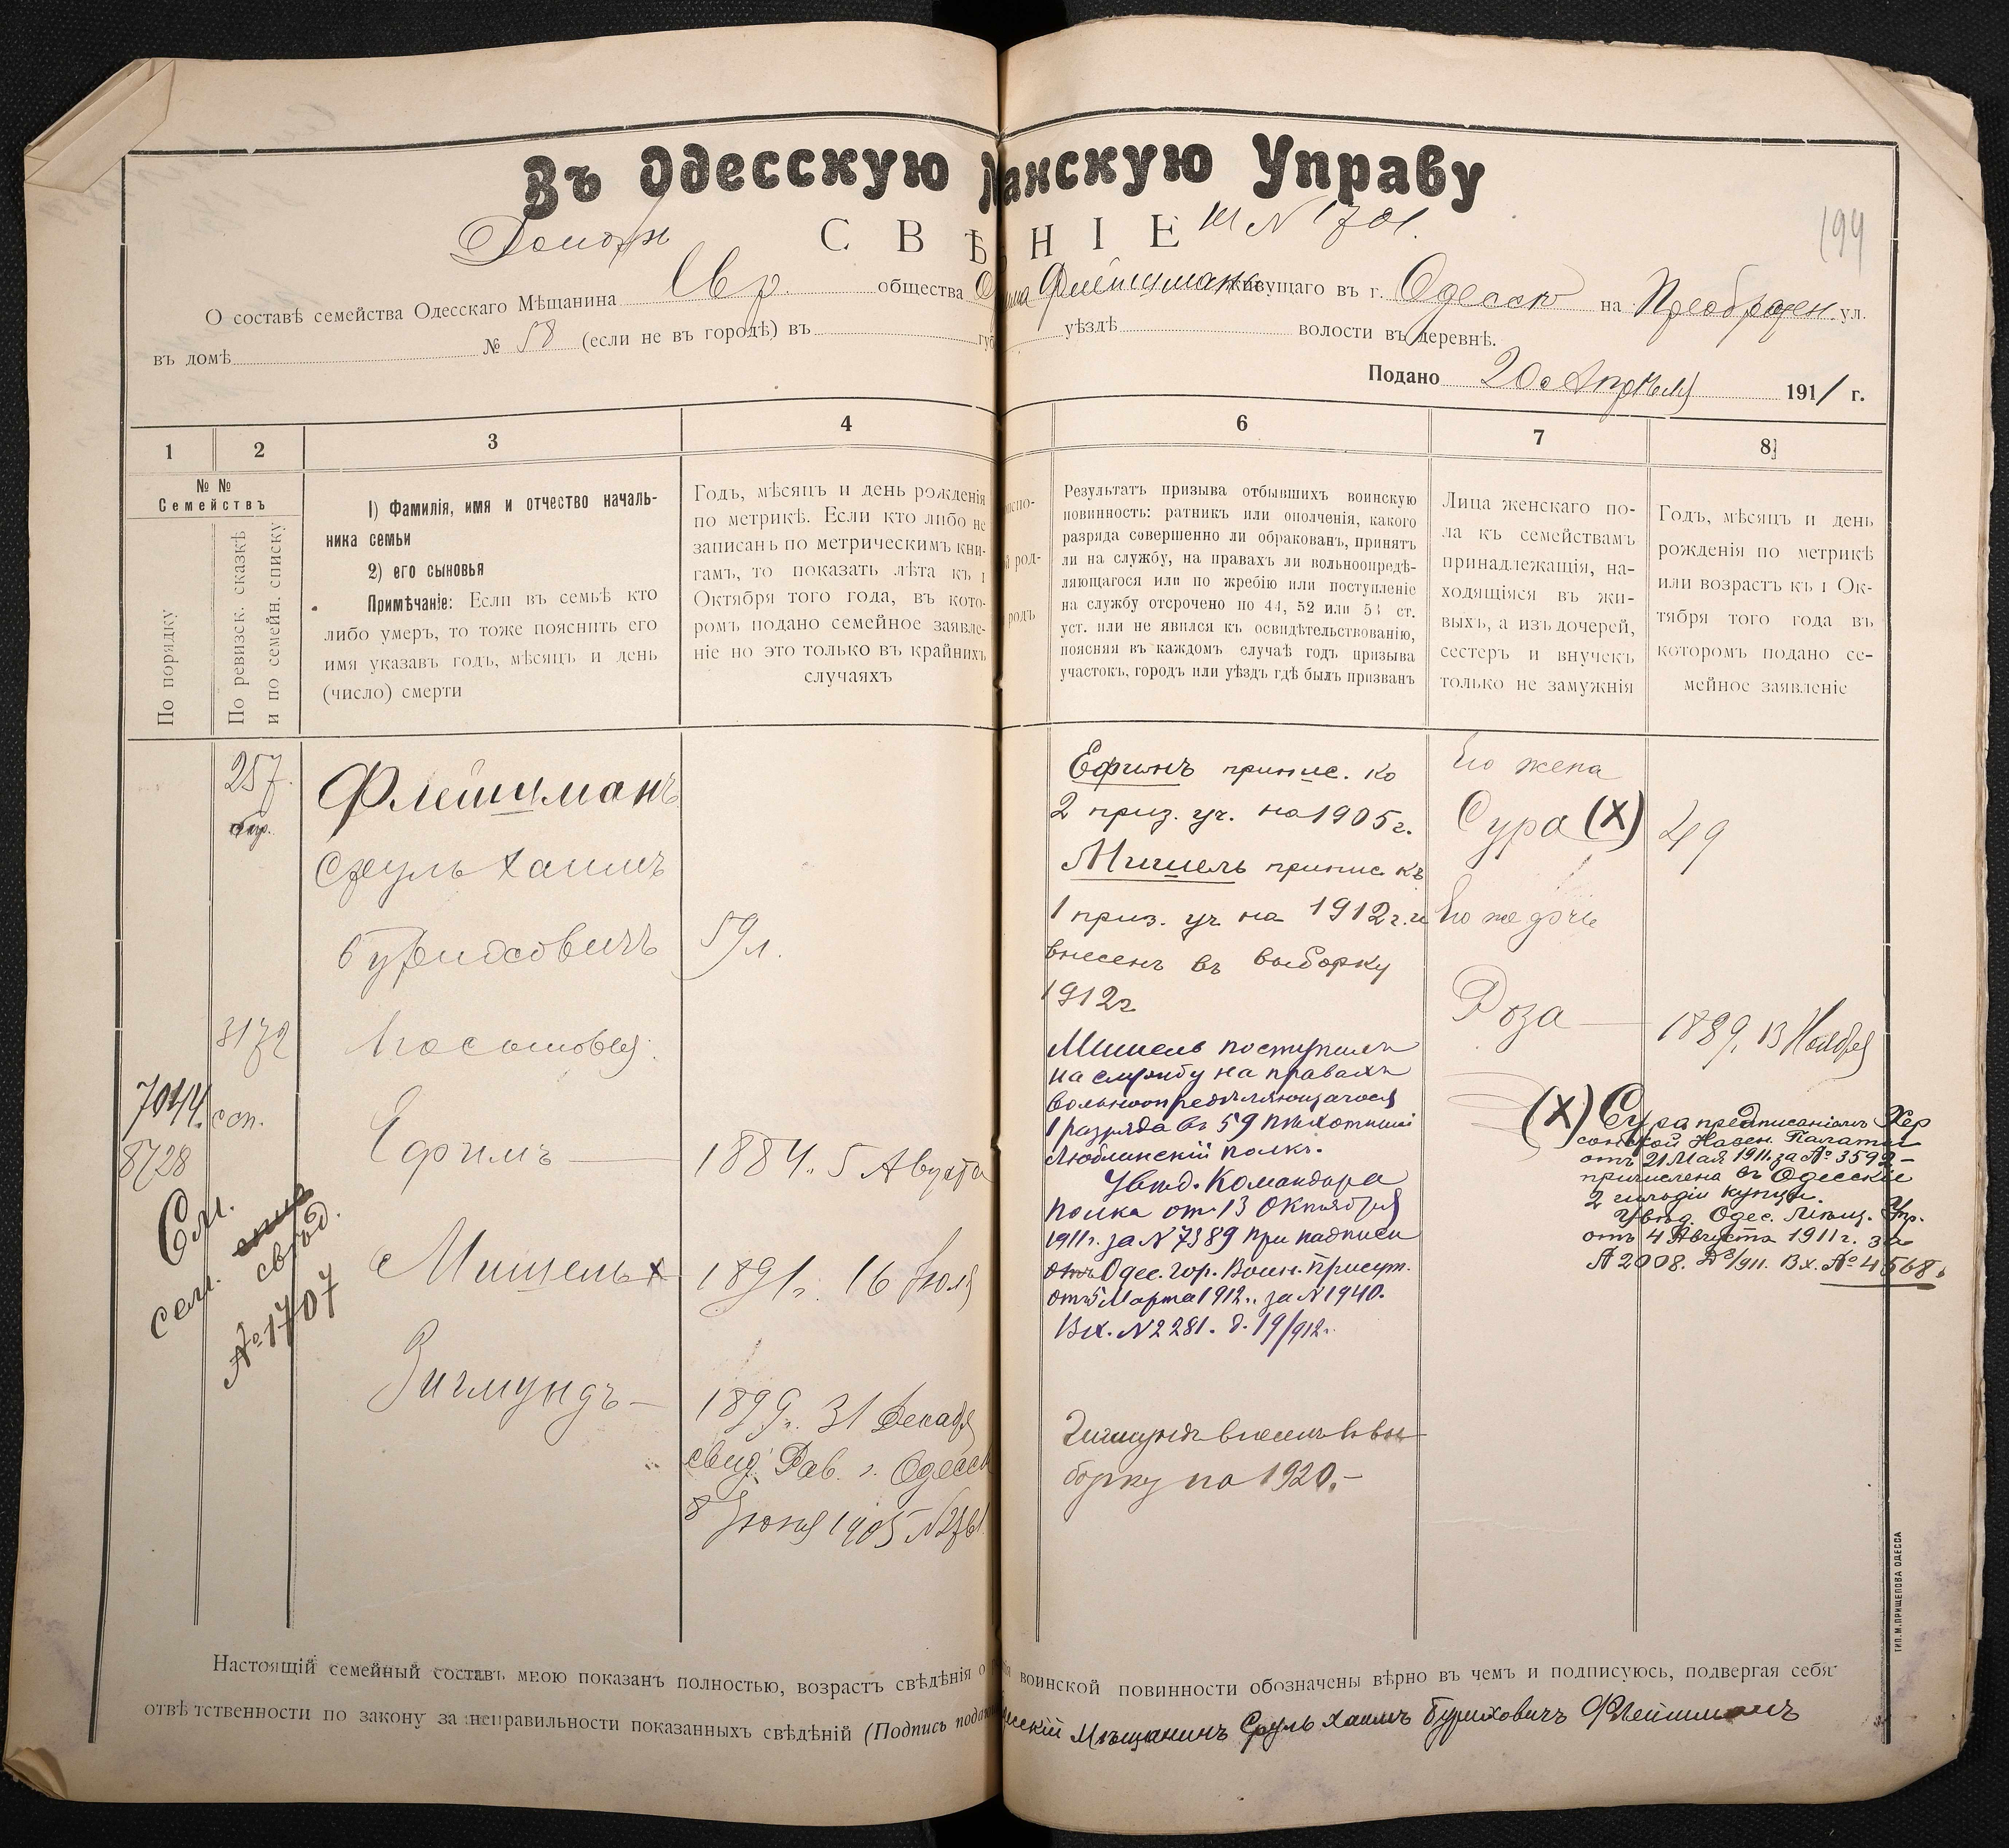 Въ Одесскую анскую Управу
СВѢ НІЕ № 1701.
199
О составѣ семейства Одесскаго Мѣщанина Евр. общества Флейшмана живущаго въ г. Одессѣ на Преображен. ул.
въ домѣ № 58 (если не въ городѣ) въ губ уѣздѣ волости въ деревнѣ.
Подано 20 Апрѣля 1911 г.
1
2
3
4
6
7
8
№ №
Семействъ
По порядку
По ревизск. сказкѣ
и по семейн. списку
1) Фамилія, имя и отчество началь-
ника семьи
2) его сыновья
Примѣчаніе: Если въ семьѣ кто
либо умеръ, то тоже пояснить его
имя указавъ годъ, мѣсяцъ и день
(число) смерти
Годъ, мѣсяцъ и день рожденія
по метрикѣ. Если кто либо не
записанъ по метрическимъ кни-
гамъ, то показать лѣта къ 1
Октября того года, въ кото-
ромъ подано семейное заявле-
ніе но это только въ крайнихъ
случаяхъ
род-
родъ
Результатъ призыва отбывшихъ воинскую
повинность: ратникъ или ополченія, какого
разряда совершенно ли обракованъ, принятъ
ли на службу, на правахъ ли вольноопредѣ-
ляющагося или по жребію или поступленіе
на службу отсрочено по 44, 52 или 54 ст.
уст. или не явился къ освидѣтельствованію,
поясняя въ каждомъ случаѣ годъ призыва
участокъ, городъ или уѣздъ гдѣ былъ призванъ
Лица женскаго по-
ла къ семействамъ
принадлежащія, на-
ходящіяся въ жи-
выхъ, а изъ дочерей,
сестеръ и внучекъ
только не замужнія
Годъ, мѣсяцъ и день
рожденія по метрикѣ
или возрастъ къ 1 Ок-
тября того года въ
которомъ подано се-
мейное заявленіе
257.
3172
7044.
8728
См.
сем. свѣд.
№ 1707
Флейшманъ
Сруль Хаимъ
Буриховичъ
59 л.
Ефимъ — 1884. 5 Августа
Мишель х 1891 г. 16 Іюля
Зигмундъ — 1899 г. 31 Декабр
свид. Рав. г. Одессы
8 Іюня 1905 № 2761
Ефимъ припис. ко
2 приз. уч. на 1905 г.
Мишель припис къ
1 приз. уч на 1912 г. и
внесенъ въ выборку
1912 г
Мишель поступилъ
на службу на правахъ
вольноопредѣляющагося
1 разряда въ 59 пѣхотный
Люблинскій полкъ.
Увѣд. Командира
полка отъ 13 Октября
1911 г. за № 7389 при надписи
Одес. Гор. Воин. Присут.
отъ 5 Марта 1912 г. за № 1940.
Вх. № 2281. д. 19/912 г.
Зигмундъ внесенъ въ вы
борку на 1920. —
Его жена
Сура (X) 49
Его же дочь
Роза — 1889, 13 Ноября
(X) Сура предписаніемъ Хер
сонской Казен. Палаты
отъ 21 Мая 1911 г. за № 3592 —
причислена въ Одесскіе
2 гильдіи купцы.
Увѣд. Одес. Мѣщ. Упр.
отъ 4 Августа 1911 г. за
№ 2008. Вх. № 4568.
Настоящій семейный составъ мною показанъ полностью, возрастъ свѣдѣнія о воинской повинности обозначены вѣрно въ чемъ и подписуюсь, подвергая себя
отвѣтственности по закону за неправильности показанныхъ свѣдѣній (Подпись Мѣщанинъ Сруль Хаимъ Буриховичъ Флейшманъ
ТИП. М. ПРИЩЕПОВА ОДЕССА